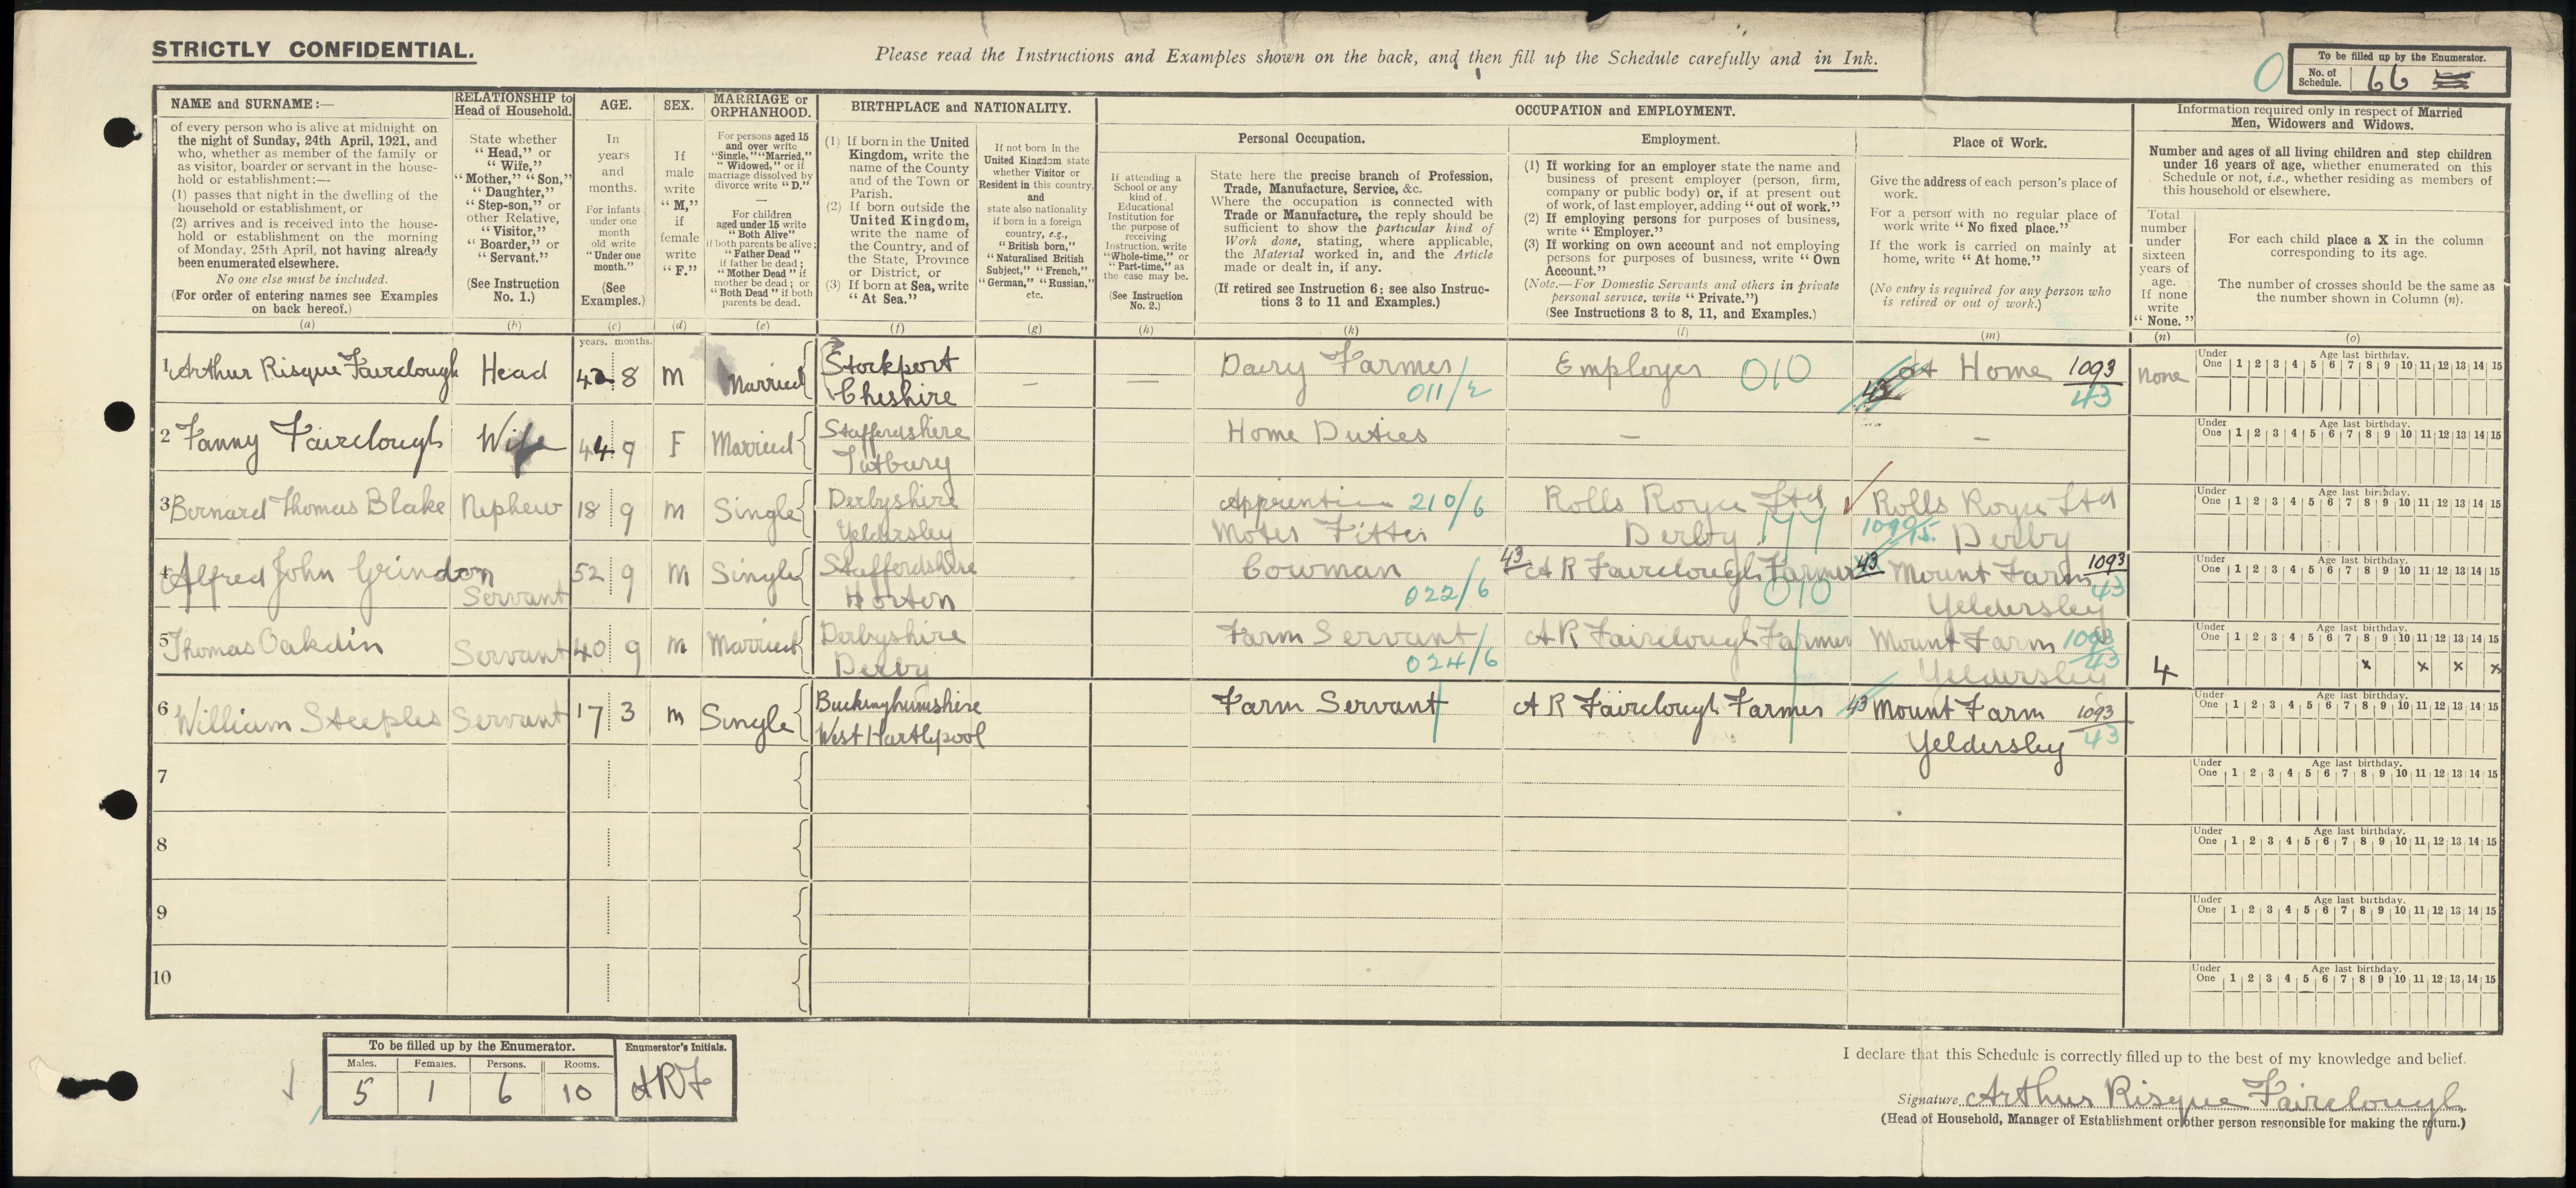 STRICTLY CONFIDENTIAL.
Please read the Instructions and Examples shown on the back, and then fill up the Schedule carefully and in Ink.
To be filled up by the Enumerator.
No. of Schedule. 66
NAME and SURNAME:—
of every person who is alive at midnight on
the night of Sunday, 24th April, 1921, and
who, whether as member of the family or
as visitor, boarder or servant in the house-
hold or establishment:—
(1) passes that night in the dwelling of the
household or establishment, or
(2) arrives and is received into the house-
hold or establishment on the morning
of Monday, 25th April, not having already
been enumerated elsewhere.
No one else must be included.
(For order of entering names see Examples
on back hereof.)
(a)
RELATIONSHIP to
Head of Household.
State whether
"Head," or
"Wife,"
"Mother," "Son,"
"Daughter,"
"Step-son," or
other Relative,
"Visitor,"
"Boarder," or
"Servant."
(See Instruction
No. 1.)
(b)
AGE.
In
years
and
months.
For infants
under one
month
old write
"Under one
month."
(See
Examples.)
(c)
years. months.
SEX.
If
male
write
"M,"
if
female
write
"F."
(d)
MARRIAGE or
ORPHANHOOD.
For persons aged 15
and over write
"Single," "Married,"
"Widowed," or if
marriage dissolved by
divorce write "D."
For children
aged under 15 write
"Both Alive"
if both parents be alive;
"Father Dead"
if father be dead;
"Mother Dead" if
mother be dead; or
"Both Dead" if both
parents be dead.
(e)
BIRTHPLACE and NATIONALITY.
(1) If born in the United
Kingdom, write the
name of the County
and of the Town or
Parish.
(2) If born outside the
United Kingdom,
write the name of
the Country, and of
the State, Province
or District, or
(3) If born at Sea, write
"At Sea."
(f)
If not born in the
United Kingdom state
whether Visitor or
Resident in this country,
and
state also nationality
if born in a foreign
country, e.g.,
"British born,"
"Naturalised British
Subject," "French,"
"German," "Russian,"
etc.
(g)
OCCUPATION and EMPLOYMENT.
If attending a
School or any
kind of
Educational
Institution for
the purpose of
receiving
Instruction, write
"Whole-time," or
"Part-time," as
the case may be.
(See Instruction
No. 2.)
(h)
Personal Occupation.
State here the precise branch of Profession,
Trade, Manufacture, Service, &c.
Where the occupation is connected with
Trade or Manufacture, the reply should be
sufficient to show the particular kind of
Work done, stating, where applicable,
the Material worked in, and the Article
made or dealt in, if any.
(If retired see Instruction 6; see also Instruc-
tions 3 to 11 and Examples.)
(k)
Employment.
(1) If working for an employer state the name and
business of present employer (person, firm,
company or public body) or, if at present out
of work, of last employer, adding "out of work."
(2) If employing persons for purposes of business,
write "Employer."
(3) If working on own account and not employing
persons for purposes of business, write "Own
Account."
(Note.—For Domestic Servants and others in private
personal service, write "Private.")
(See Instructions 3 to 8, 11, and Examples.)
(l)
Place of Work.
Give the address of each person's place of
work.
For a person with no regular place of
work write "No fixed place."
If the work is carried on mainly at
home, write "At home."
(No entry is required for any person who
is retired or out of work.)
(m)
Information required only in respect of Married
Men, Widowers and Widows.
Number and ages of all living children and step children
under 16 years of age, whether enumerated on this
Schedule or not, i.e., whether residing as members of
this household or elsewhere.
Total
number
under
sixteen
years of
age.
If none
write
"None."
(n)
For each child place a X in the column
corresponding to its age.
The number of crosses should be the same as
the number shown in Column (n).
(o)
1 Arthur Risque Fairclough Head 42 8 M Married Stockport Cheshire — — Dairy Farmer 011/2 Employer 010 43 At Home 1093 43 None
Under One Age last birthday. 1 2 3 4 5 6 7 8 9 10 11 12 13 14 15
2 Fanny Fairclough Wife 44 9 F Married Staffordshire Tutbury Home Duties — —
Under One Age last birthday. 1 2 3 4 5 6 7 8 9 10 11 12 13 14 15
3 Bernard Thomas Blake Nephew 18 9 M Single Derbyshire Yeldersley Apprentice Motor Fitter 210/6 Rolls Royce Ltd Derby 177 Rolls Royce Ltd Derby
Under One Age last birthday. 1 2 3 4 5 6 7 8 9 10 11 12 13 14 15
4 Alfred John Grindon Servant 52 9 M Single Staffordshire Horton Cowman 022/6 43 A R Fairclough Farmer 010 43 Mount Farm Yeldersley 1093 43
Under One Age last birthday. 1 2 3 4 5 6 7 8 9 10 11 12 13 14 15
5 Thomas Oakdin Servant 40 9 M Married Derbyshire Derby Farm Servant 024/6 A R Fairclough Farmer Mount Farm Yeldersley 1093 43 4
Under One Age last birthday. 1 2 3 4 5 6 7 8 9 10 11 12 13 14 15
x x x x
6 William Steeples Servant 17 3 M Single Buckinghamshire West Hartlepool Farm Servant A R Fairclough Farmer 43 Mount Farm Yeldersley 1093 43
Under One Age last birthday. 1 2 3 4 5 6 7 8 9 10 11 12 13 14 15
7
Under One Age last birthday. 1 2 3 4 5 6 7 8 9 10 11 12 13 14 15
8
Under One Age last birthday. 1 2 3 4 5 6 7 8 9 10 11 12 13 14 15
9
Under One Age last birthday. 1 2 3 4 5 6 7 8 9 10 11 12 13 14 15
10
Under One Age last birthday. 1 2 3 4 5 6 7 8 9 10 11 12 13 14 15
To be filled up by the Enumerator. Enumerator's Initials.
Males. Females. Persons. Rooms.
5 1 6 10 ARF
I declare that this Schedule is correctly filled up to the best of my knowledge and belief.
Signature Arthur Risque Fairclough
(Head of Household, Manager of Establishment or other person responsible for making the return.)